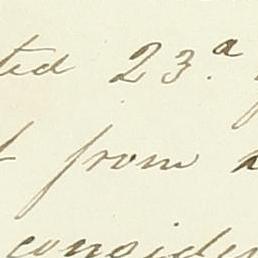 ted 23.ª
from
conside